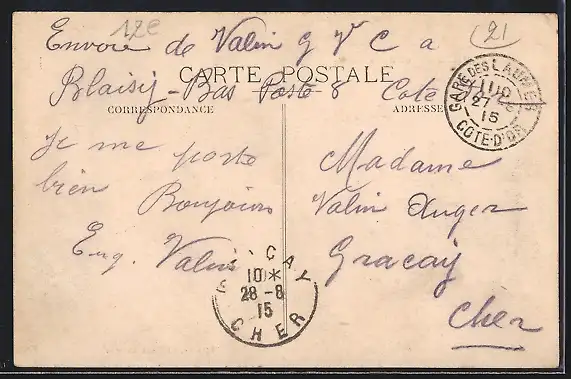 12e
(21
Envoie de Valin G V C a
CARTE POSTALE
Blaisy-Bas Poste 8 Cote
CORRESPONDANCE
ADRESSE
GARE DES LAUMES
27 -8
15
COTE-D'OR
Je me porte
bien Bonjour
Eug. Valin
Madame
Valin Auger
Graçay
Cher
CAY
10*
28 -8
15
CHER